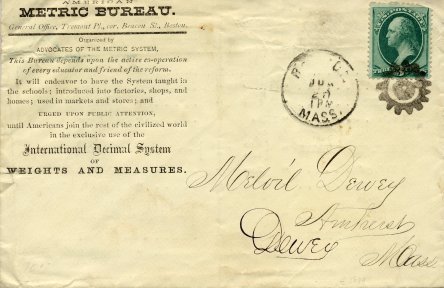 AMERICAN
METRIC BUREAU.
General Office, Tremont Pl., cor. Beacon St., Boston.
Organized by
ADVOCATES OF THE METRIC SYSTEM,
This Bureau depends upon the active co-operation
of every educator and friend of the reform.
It will endeavor to have the System taught in
the schools; introduced into factories, shops, and
homes; used in markets and stores; and
URGED UPON PUBLIC ATTENTION,
until Americans join the rest of the civilized world
in the exclusive use of the
International Decimal System
OF
WEIGHTS AND MEASURES.
1 PM
MASS.
Melvil Dewey
Amherst
Dewey Mass